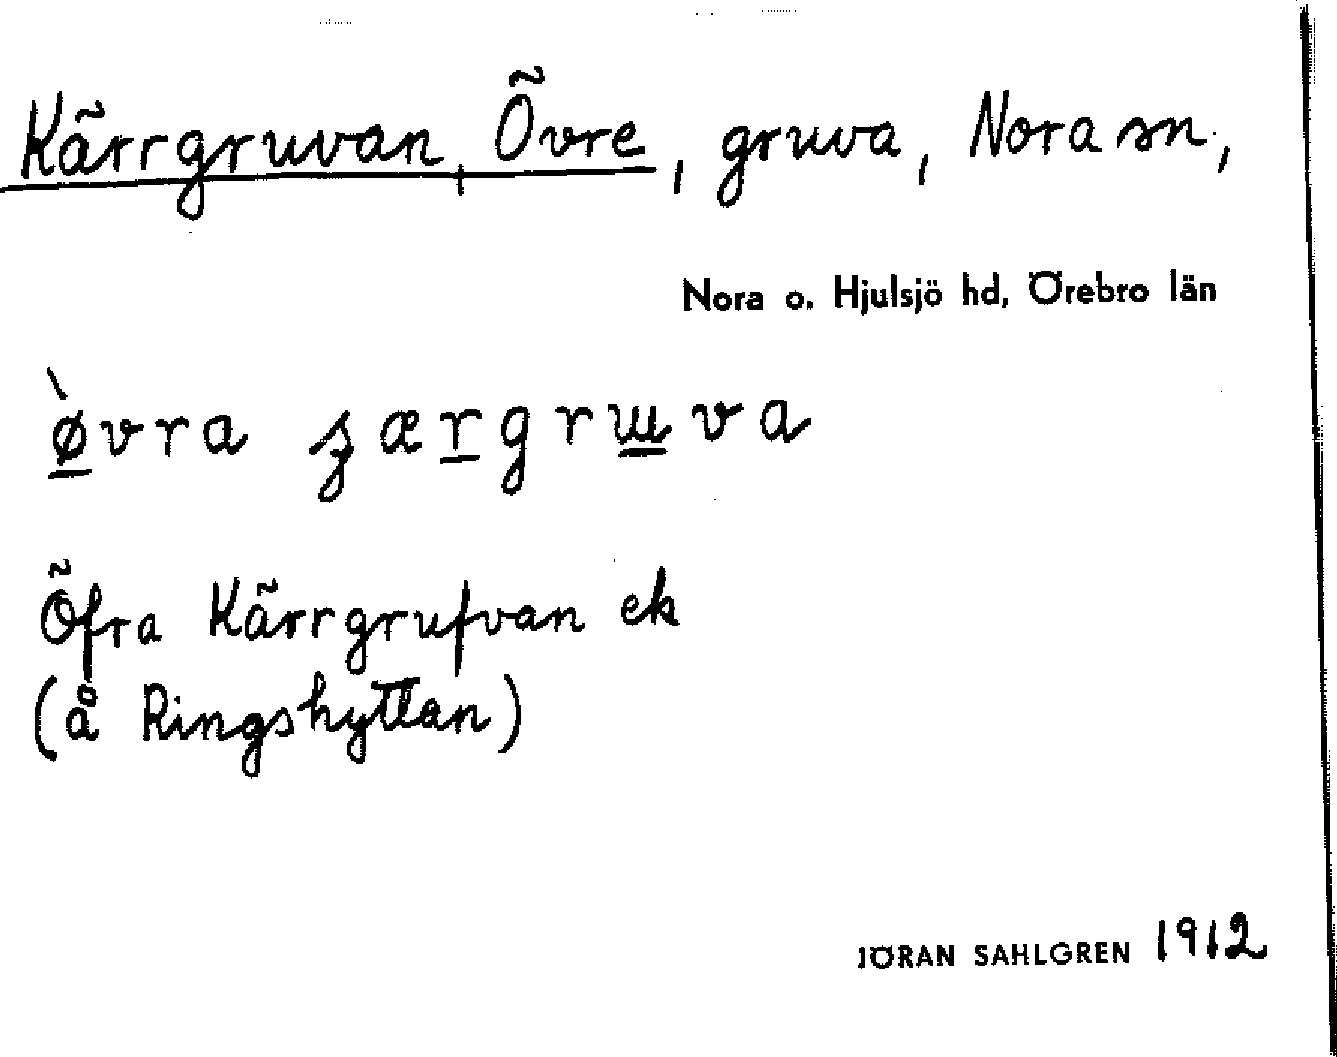 Kärrgruvan, Övre, gruva, Nora sn,
Nora o. Hjulsjö hd, Örebro län
Öfra Kärrgrufvan ek
(å Ringshyttan)
JÖRAN SAHLGREN 1912